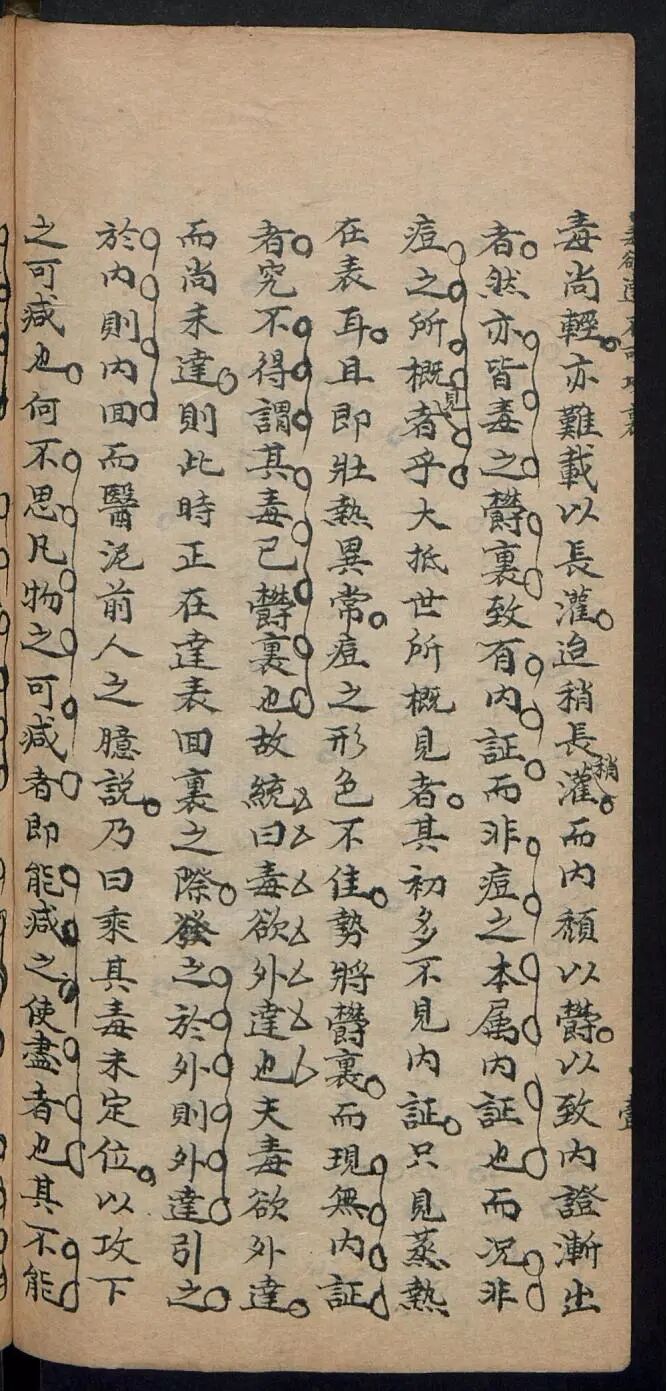 毒欲達不可攻裏
毒尚輕亦難載以長灌迨稍長灌稍而内頹以欝以致内證漸出
者然亦皆毒之欝裏致有内証而非痘之本属内証也而况非
痘之所概見者乎大抵世所概見者其初多不見内証只見蒸熱
在表耳且即壯熱異常痘之形色不佳勢將欝裏而現無内証
者究不得謂其毒已欝裏也故統曰毒欲外達也夫毒欲外達
而尚未達則此時正在達表回裏之際發之於外則外達引之
於内則内回而醫泥前人之臆說乃曰乘其毒未定位以攻下
之可减也何不思凡物之可减者即能减之使盡者也其不能